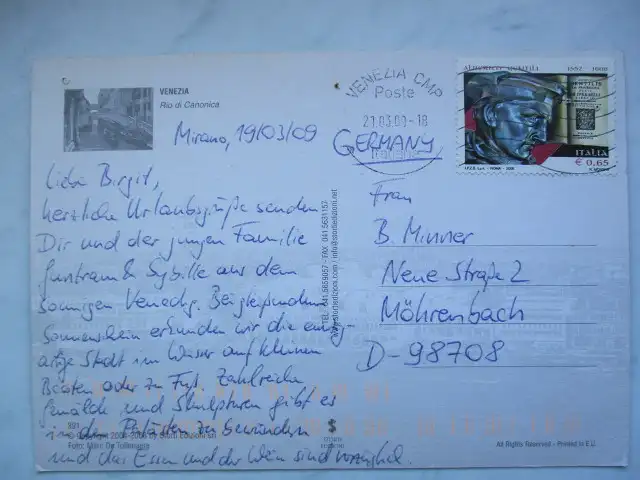 VENEZIA
Rio di Canonica
Mirano, 19/03/09
Liebe Birgit,
herzliche Urlaubsgrüße senden
Dir und der jungen Familie
Guntram & Sybille aus dem
sonnigen Venedig. Bei
Sonnenschein erkunden wir die einzig-
artige Stadt im Wasser auf kleinen
Booten oder zu Fuß. Zahlreiche
Gemälde und Skulpturen gibt es
in den Palästen zu bewundern
und das Essen und der Wein sind vorzüglich.
VENEZIA CMP
Poste
21.03.09-18
Italiane
GERMANY
ALBERICO GENTILI 1552 1608
ITALIA
€ 0,65
Frau
B. Minner
Neue Straße 2
Möhrenbach
D-98708
TEL. 041.5659057 - FAX 041.5631157
All Rights Reserved - Printed in E.U.